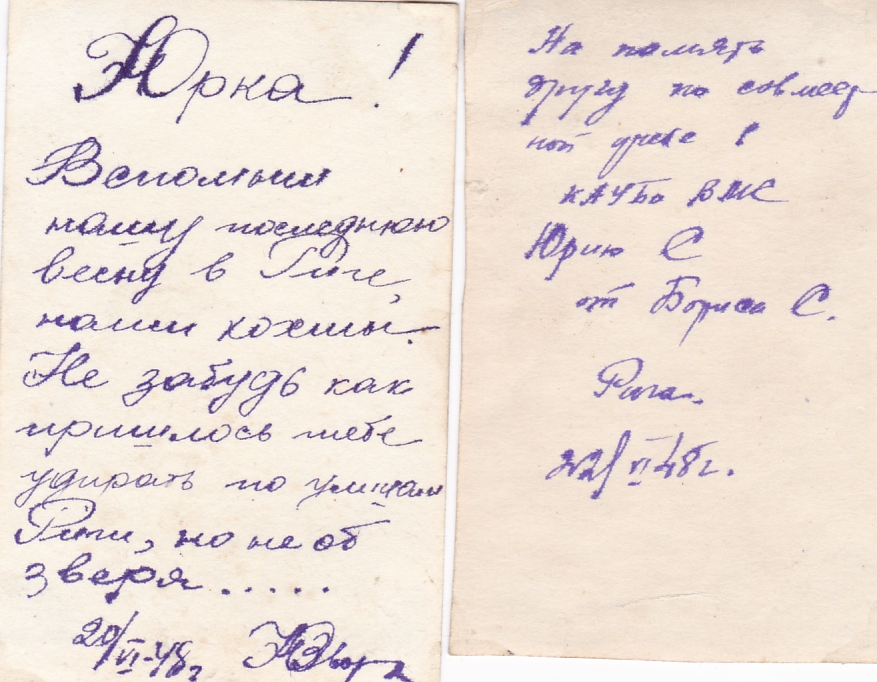 Юрка!
Вспомни
нашу последнюю
весну в Риге,
наши хохмы.
Не забудь как
пришлось тебе
удирать по улицам
Риги, но не об
зверя.....
20/VI-48г
На память
другу по совмест
ной учебе !
КАУБО ВМС
Юрию С
от Бориса С.
Рига.
22/VI 48г.